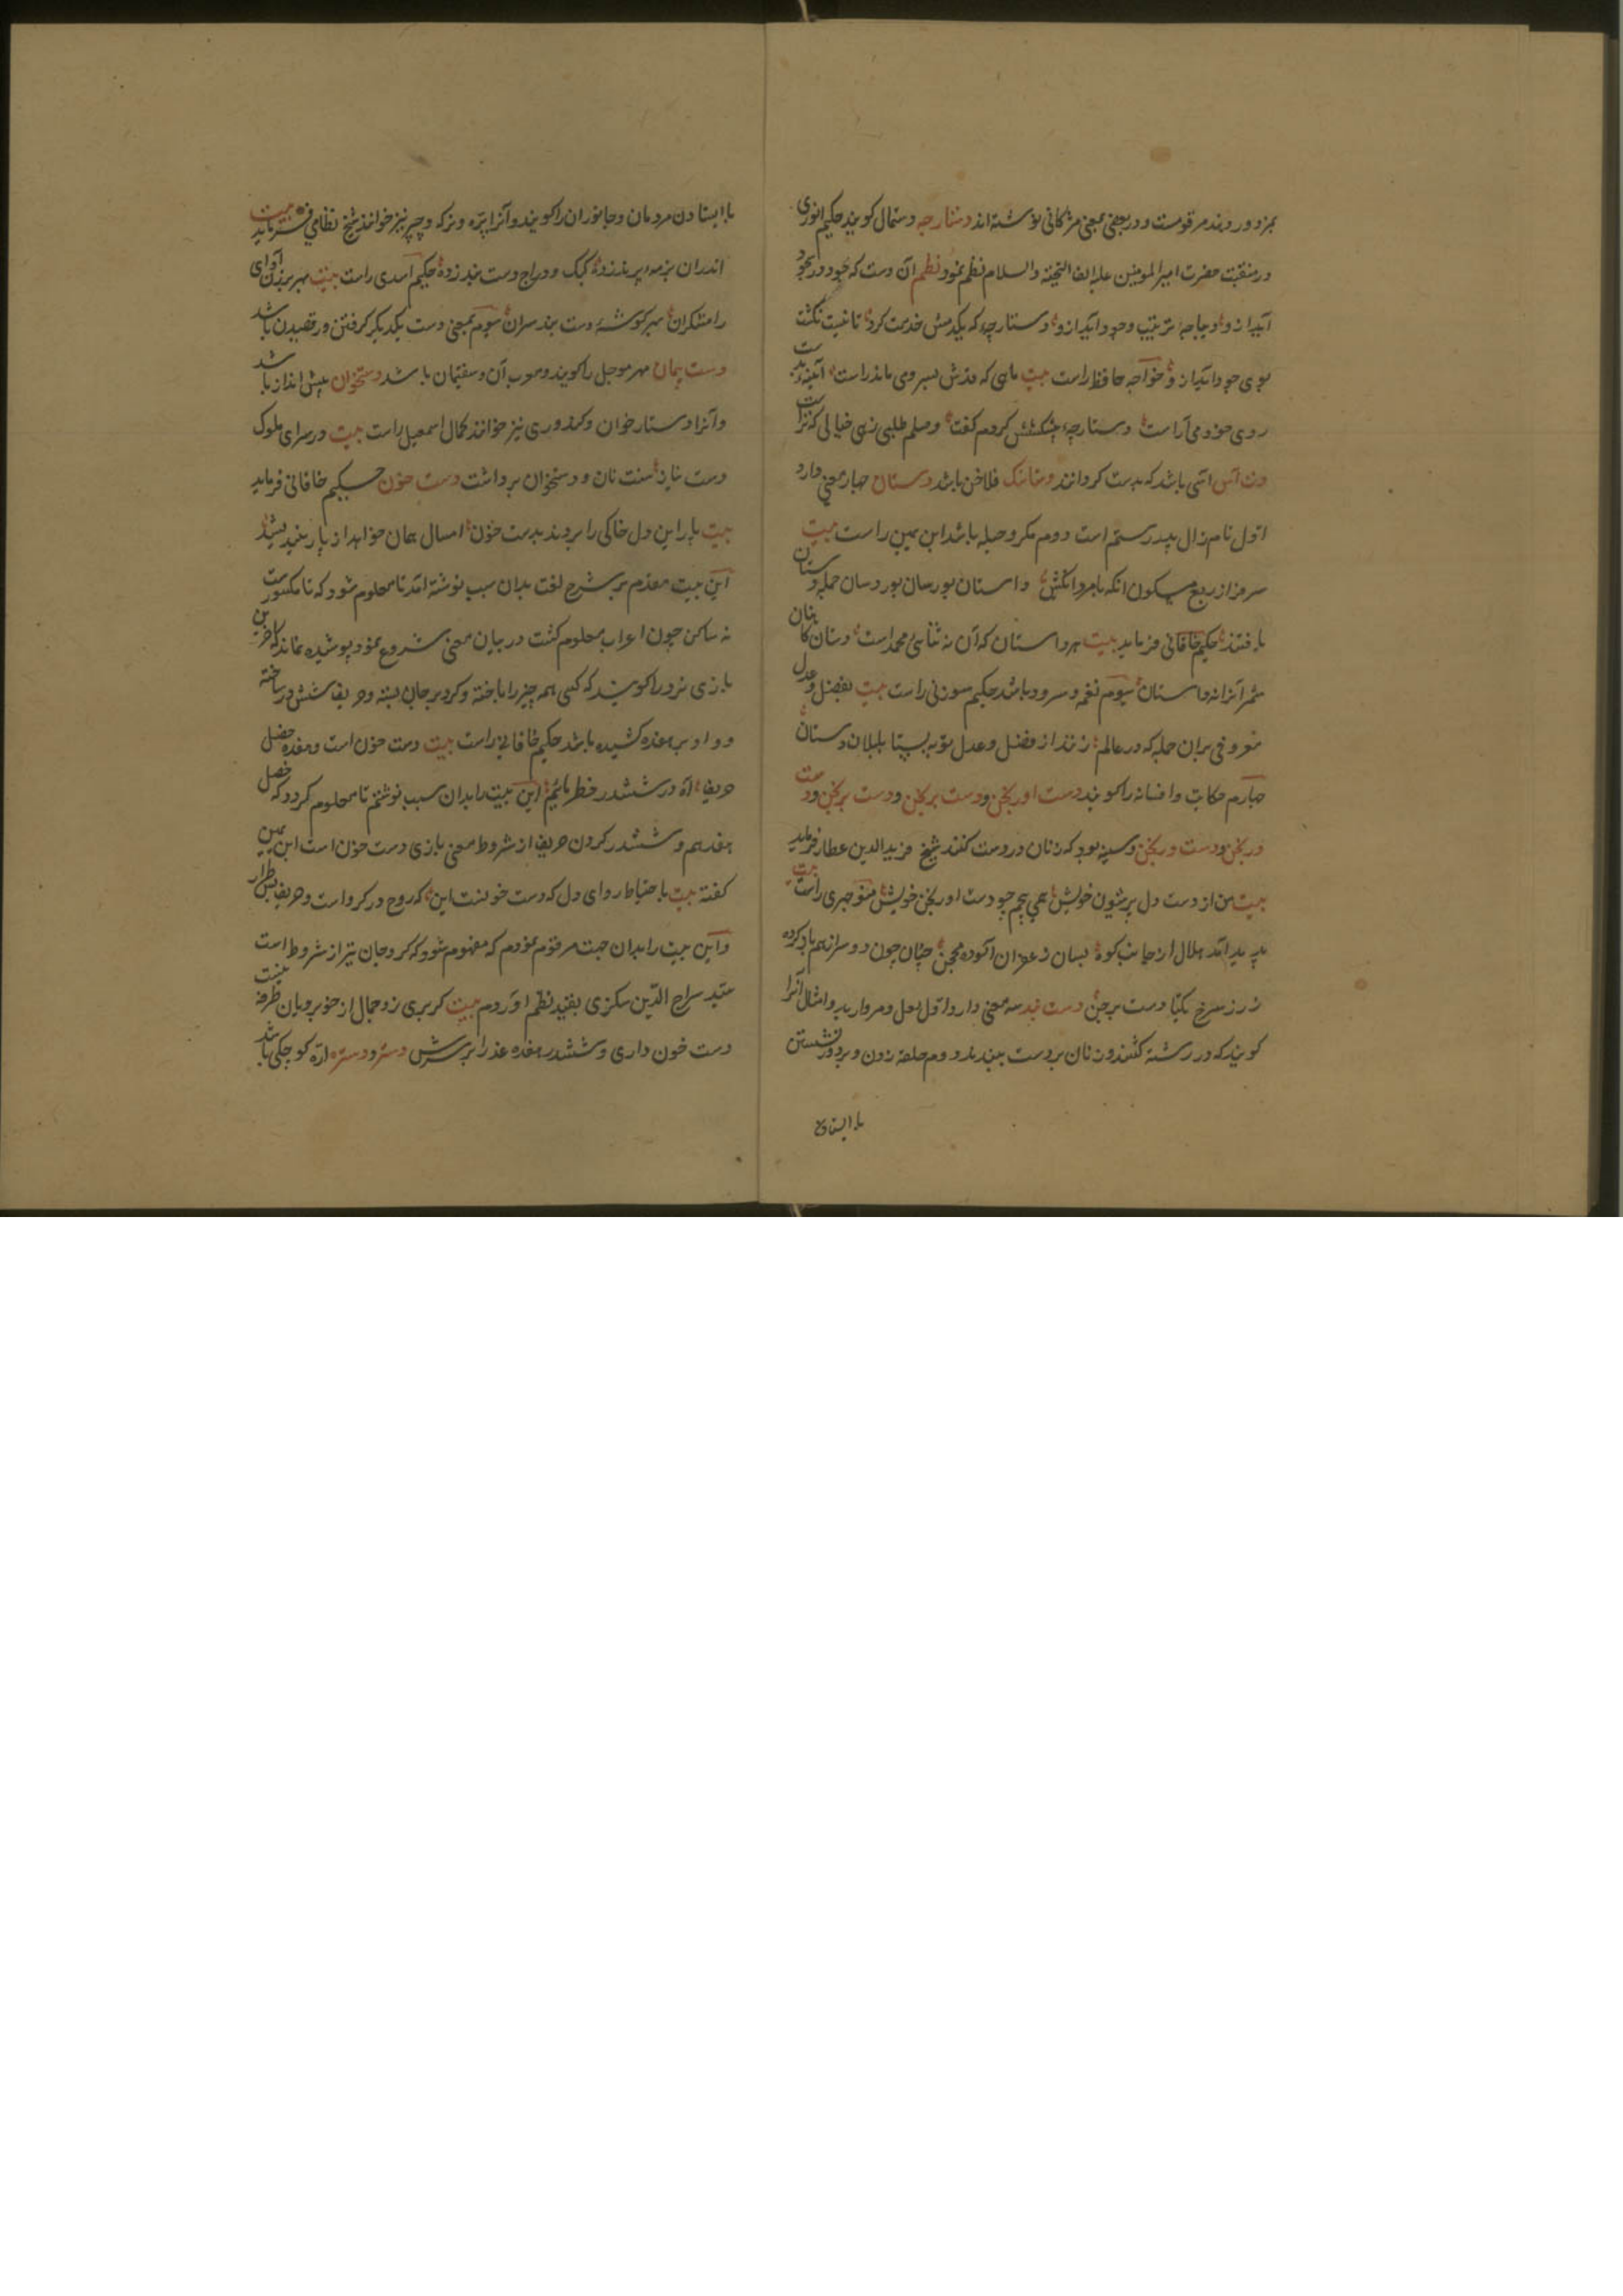 بمزدور دیندمرقومست ودربعضی بمعنی مژدکانی نوشته اند دستارچه دستمال کویند حکیم انوری
درمنقبت حضرت امیرالمومنین علیه الف التحیته والسلام نظم نمود نظم آن دست که جود در سجود
آیدازو دیباجه ترتیب وجود آیدازو دستارچه که یکدمش خدمت کرد تا نیست نکشت
بوی جود آیدازو خواجه حافظ راست بیت ماهی که قدش بسرو می ماند راست آیینه بدست
روی خود می آراست دستارچه پیشکشش کردم کفت وصلم طلبی زهی خیالی که تراست
دست آس آسی باشد که بدست کردانند دستاسنک فلاخن باشد دستان چهار معنی دارد
اول نام زال پدر رستم است دوم مکر وحیله باشد ابن یمین راست بیت
سرمزاز ربع مسکون انکه با مردانکیش داستان پور سان پور دسان حیله ودستان
یافتند حکیم خاقانی فرماید بیت هر داستان که آن نه ثنای محمد است دستان کاهنان
شمر آنرا نه داستان سیوم نغمه وسرود باشد حکیم سوزنی راست بیت بفضل وعدل
معروفی بران جمله که در عالم زنند از فضل وعدل تو به بستا بلبلان دستان
چهارم حکایت وافسانه را کویند دست اورنجن ودست برنجن ودست برنجن ودست
ورنجن ودست ورنجن وسینه بود که زنان در دست کنند شیخ فرید الدین عطار فرماید
بیت من از دست دل پرشیون خویش همی پیچم چو دست اورنجن خویش منوچهری راست بیت
پدید آمد هلال از جانب کوه بسان زعفران آلوده محجن چنان چون دو سر از هم باز کرده
ز زر سرخ یکتا دست برنجن دست بند سه معنی دارد اول لعل ومروارید وامثال آنرا
کویند که در رشته کشند وزنان بر دست ببندند دوم حلقه زدن وبر دور نشستن
با ایستادن
با ایستادن مردمان وجانوران را کویند وآنرا پره ونرکه وچپر نیز خوانند شیخ نظامی فرماید بیت
اندران بزمه پر بند زده کبک ودراج دست بند زده حکیم اسدی راست بیت بهر برزن آوای
رامشکران بهر کوشه دست بند سران سیوم بمعنی دست یکدیکر کرفتن ورقصیدن باشد
دست پیمان مهر موجل را کویند ومعرب آن دستفیمان باشد دستخوان پیش انداز باشد
وآنرا دستارخوان وکندوری نیز خوانند کمال اسمعیل راست بیت در سرای ملوک
دست نیاز سنت نان ودستخوان برداشت دست خون حکیم خاقانی فرماید
بیت پار این دل خاکی را بردند بدست خون امسال همان خواهد از پار نیندیشد
این بیت مقدم بر شرح لغت بدان سبب نوشته آمد تا معلوم شود که تا مکسورست
نه ساکن چون اعراب معلوم کشت در بیان معنی شروع نمود پوشیده نماند که آخرین
بازی نرد را کویند که کسی همه چیز را باخته وکرو بر جان بسته وحریف شش در ساخته
وداو بر هفده کشیده باشد حکیم خاقانی راست بیت دست خون است وهفده خصل
حریف آه در ششدر خطر مائیم این بیت را بدان سبب نوشتم تا معلوم کردد که خصل
هفدهم وششدر کردن حریف از شروط معنی بازی دست خون است ابن یمین
کفته بیت با احتیاط رو ای دل که دست خونست این که روح در کرو است وحریف بس طرار
واین بیت را بدان جهت مرقوم نمودم که مفهوم شود که کرو جان نیز از شروط است
سید سراج الدین سکزی بقید نظم آوردم بیت کر بری زو جمال از خوبرویان طرفه نیست
دست خون داری وششدر هفده عذرا برسرش دستر ودستره اره کوچکی باشد